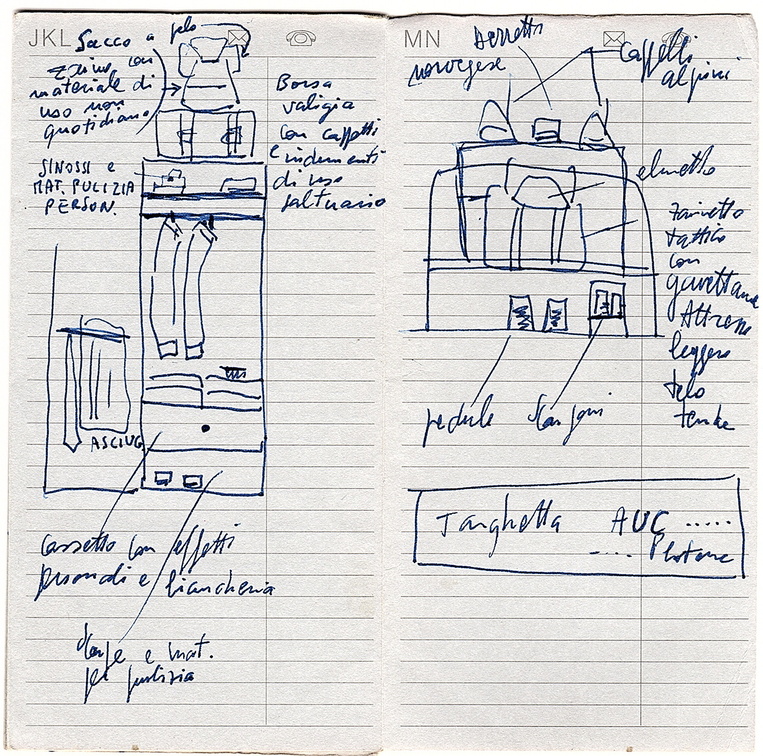 JKL
Sacco a pelo
Zaino con
materiale di
uso non
quotidiano
Borsa
valigia
con cappotti
e indumenti
di uso
saltuario
SINOSSI e
MAT. PULIZIA
PERSON.
ASCIUG
cassetto con effetti
personali e biancheria
Scarpe e mat.
per pulizia
MN
Berretto
norvegese
Cappelli
alpini
elmetto
Zainetto
tattico
con
gavetta
Attrezzo
leggero
telo
tenda
pedule
Scarponi
Targhetta AUC .....
.... Plotone